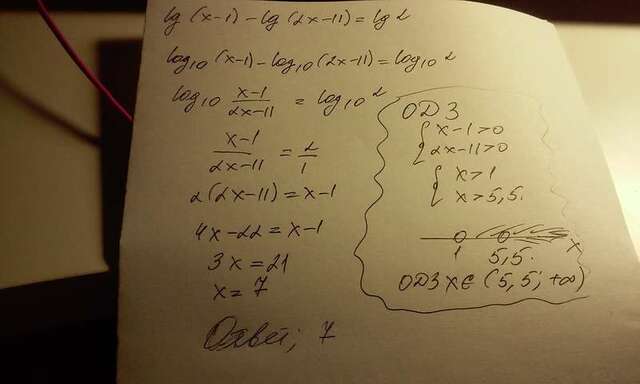 lg (x-1) - lg (2x-11) = lg 2
log₁₀ (x-1) - log₁₀ (2x-11) = log₁₀ 2
log₁₀ (x-1)/(2x-11) = log₁₀ 2
(x-1)/(2x-11) = 2/1
2(2x-11) = x-1
4x-22 = x-1
3x = 21
x = 7
Ответ: 7
ОДЗ
{ x-1>0
2x-11>0
{ x>1
x>5,5.
1 5,5. x
ОДЗ x∈ (5,5; +∞)